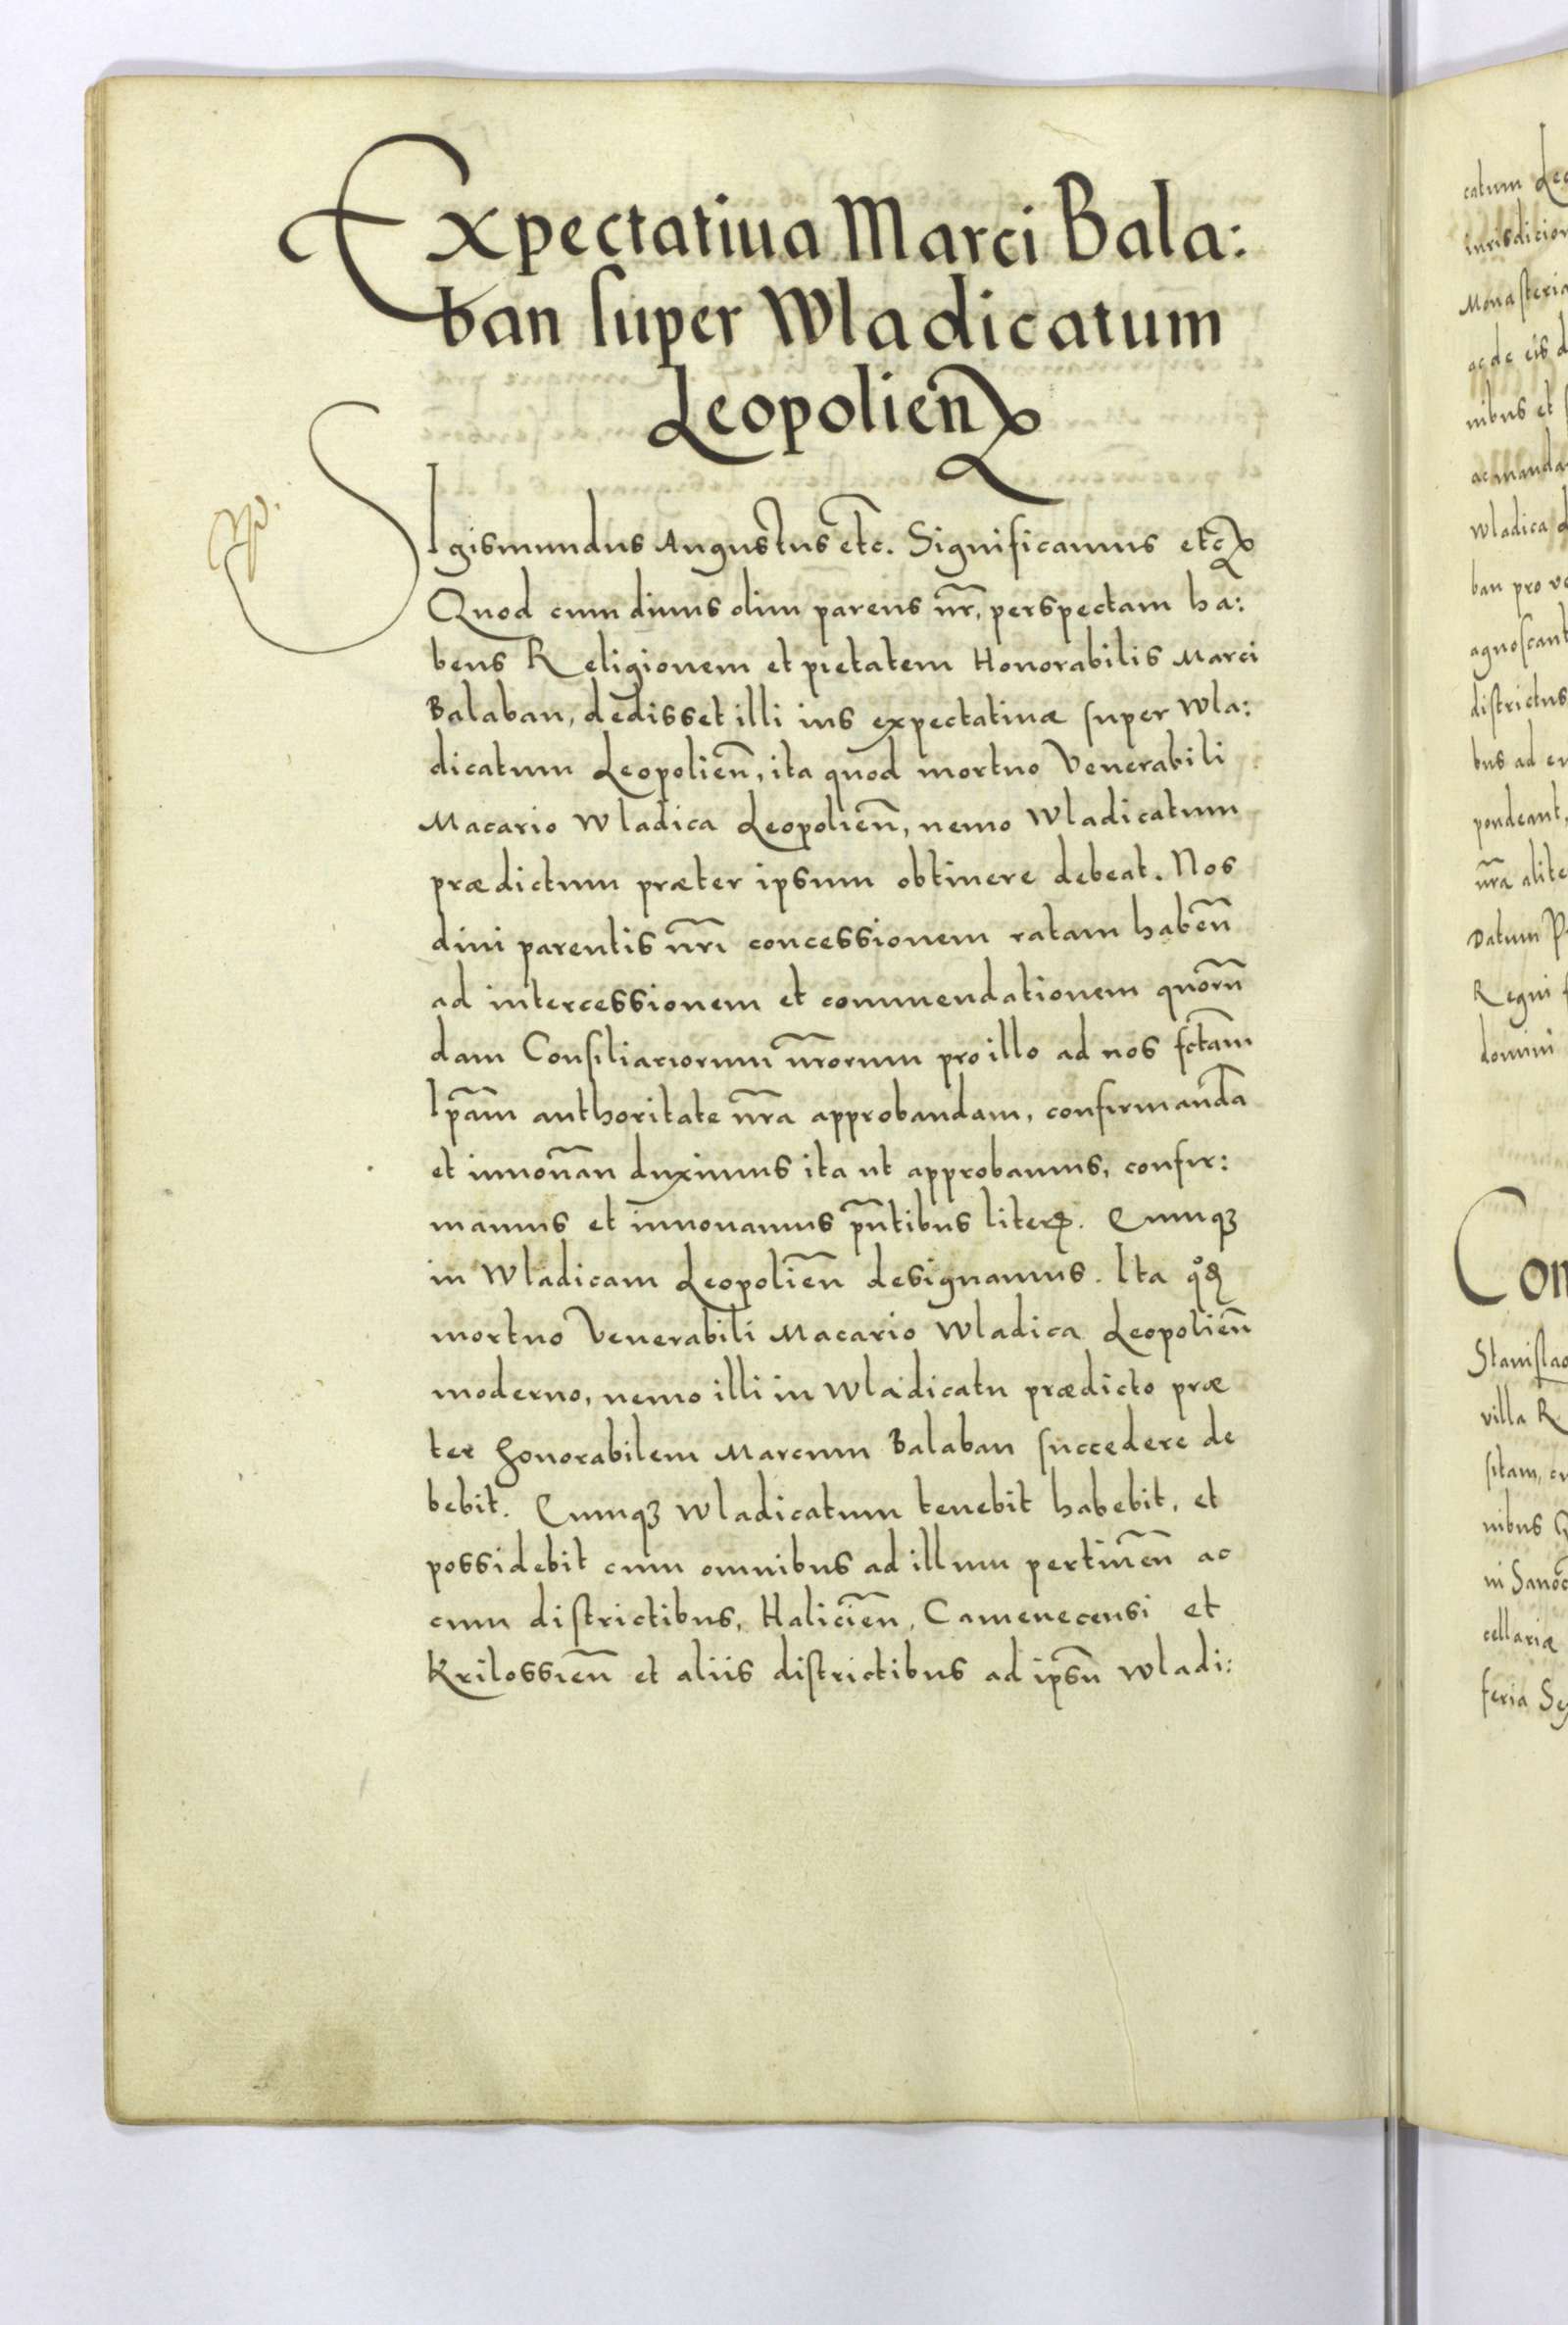 Expectatiua Marci Bala:
ban super Wladicatum
Leopolien̄
SIgismundus Augustus etc. Significamus etc
Quod cum diuus olim parens nr̄, perspectam ha:
bens Religionem et pietatem Honorabilis Marci
Balaban, dedisset illi ius expectatiuæ super Wla:
dicatum Leopolien̄, ita quod mortuo Venerabili
Macario Wladica Leopolien̄, nemo Wladicatum
prædictum præter ipsum obtinere debeat. Nos
diui parentis nr̄i concessionem ratam haben̄
ad intercessionem et commendationem quorū
dam Consiliariorum nr̄orum pro illo ad nos fctam̄
Ip̄am authoritate nr̄a approbandam, confirmandā
et innouan̄ duximus ita ut approbamus, confir:
mamus et innouamus pn̄tibus literꝭ. Eumqꝫ
in Wladicam Leopolien̄ designamus. Ita qͦd
mortuo Venerabili Macario Wladica Leopolien̄
moderno, nemo illi in Wladicatu prædicto præ
ter honorabilem Marcum Balaban succedere de
bebit. Eumqꝫ Wladicatum tenebit habebit, et
possidebit cum omnibus ad illum pertinen̄ ac
cum districtibus, Halicien̄, Camenecensi et
Krilossien̄ et aliis districtibus ad ipsū Wladi:
catum
Monasteria
ac de eis
nibus et
Wladica
ban pro
agnoscant
districtus
bus ad
pondeant,
nr̄a
Datum
Regni
domini
Com
villa R
sitam,
nibus
cellariæ
feria